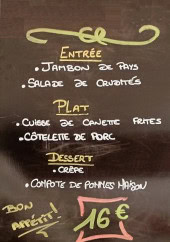 ENTRÉE
• JAMBON DE PAYS
• SALADE DE CRUDITÉS
PLAT
• CUISSE DE CANETTE FRITES
• CÔTELETTE DE PORC
DESSERT
• CRÊPE
• COMPOTE DE POMMES MAISON
BON APPÉTIT!
16 €